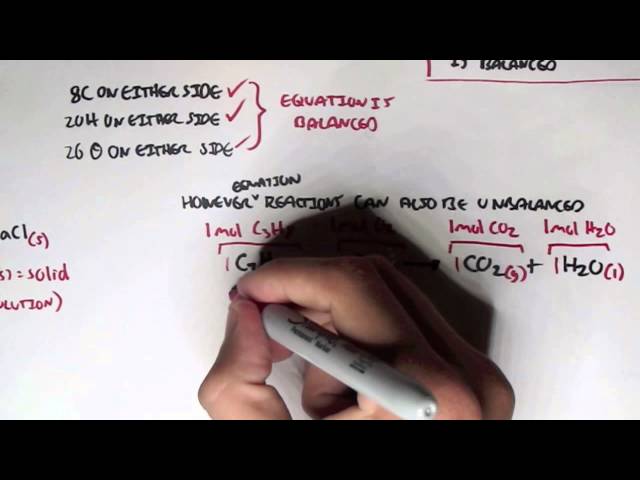 IS BALANCED
8C ON EITHER SIDE ✓
20H ON EITHER SIDE ✓
26 O ON EITHER SIDE ✓
EQUATION IS
BALANCED
EQUATION
HOWEVER ˅ REACTIONS CAN ALSO BE UNBALANCED
1mol C3H8 1mol O2 1mol CO2 1mol H2O
1C3H 1CO2(g) + 1H2O(l)
aCl(s)
(s) = solid
OLUTION)
Sharpie